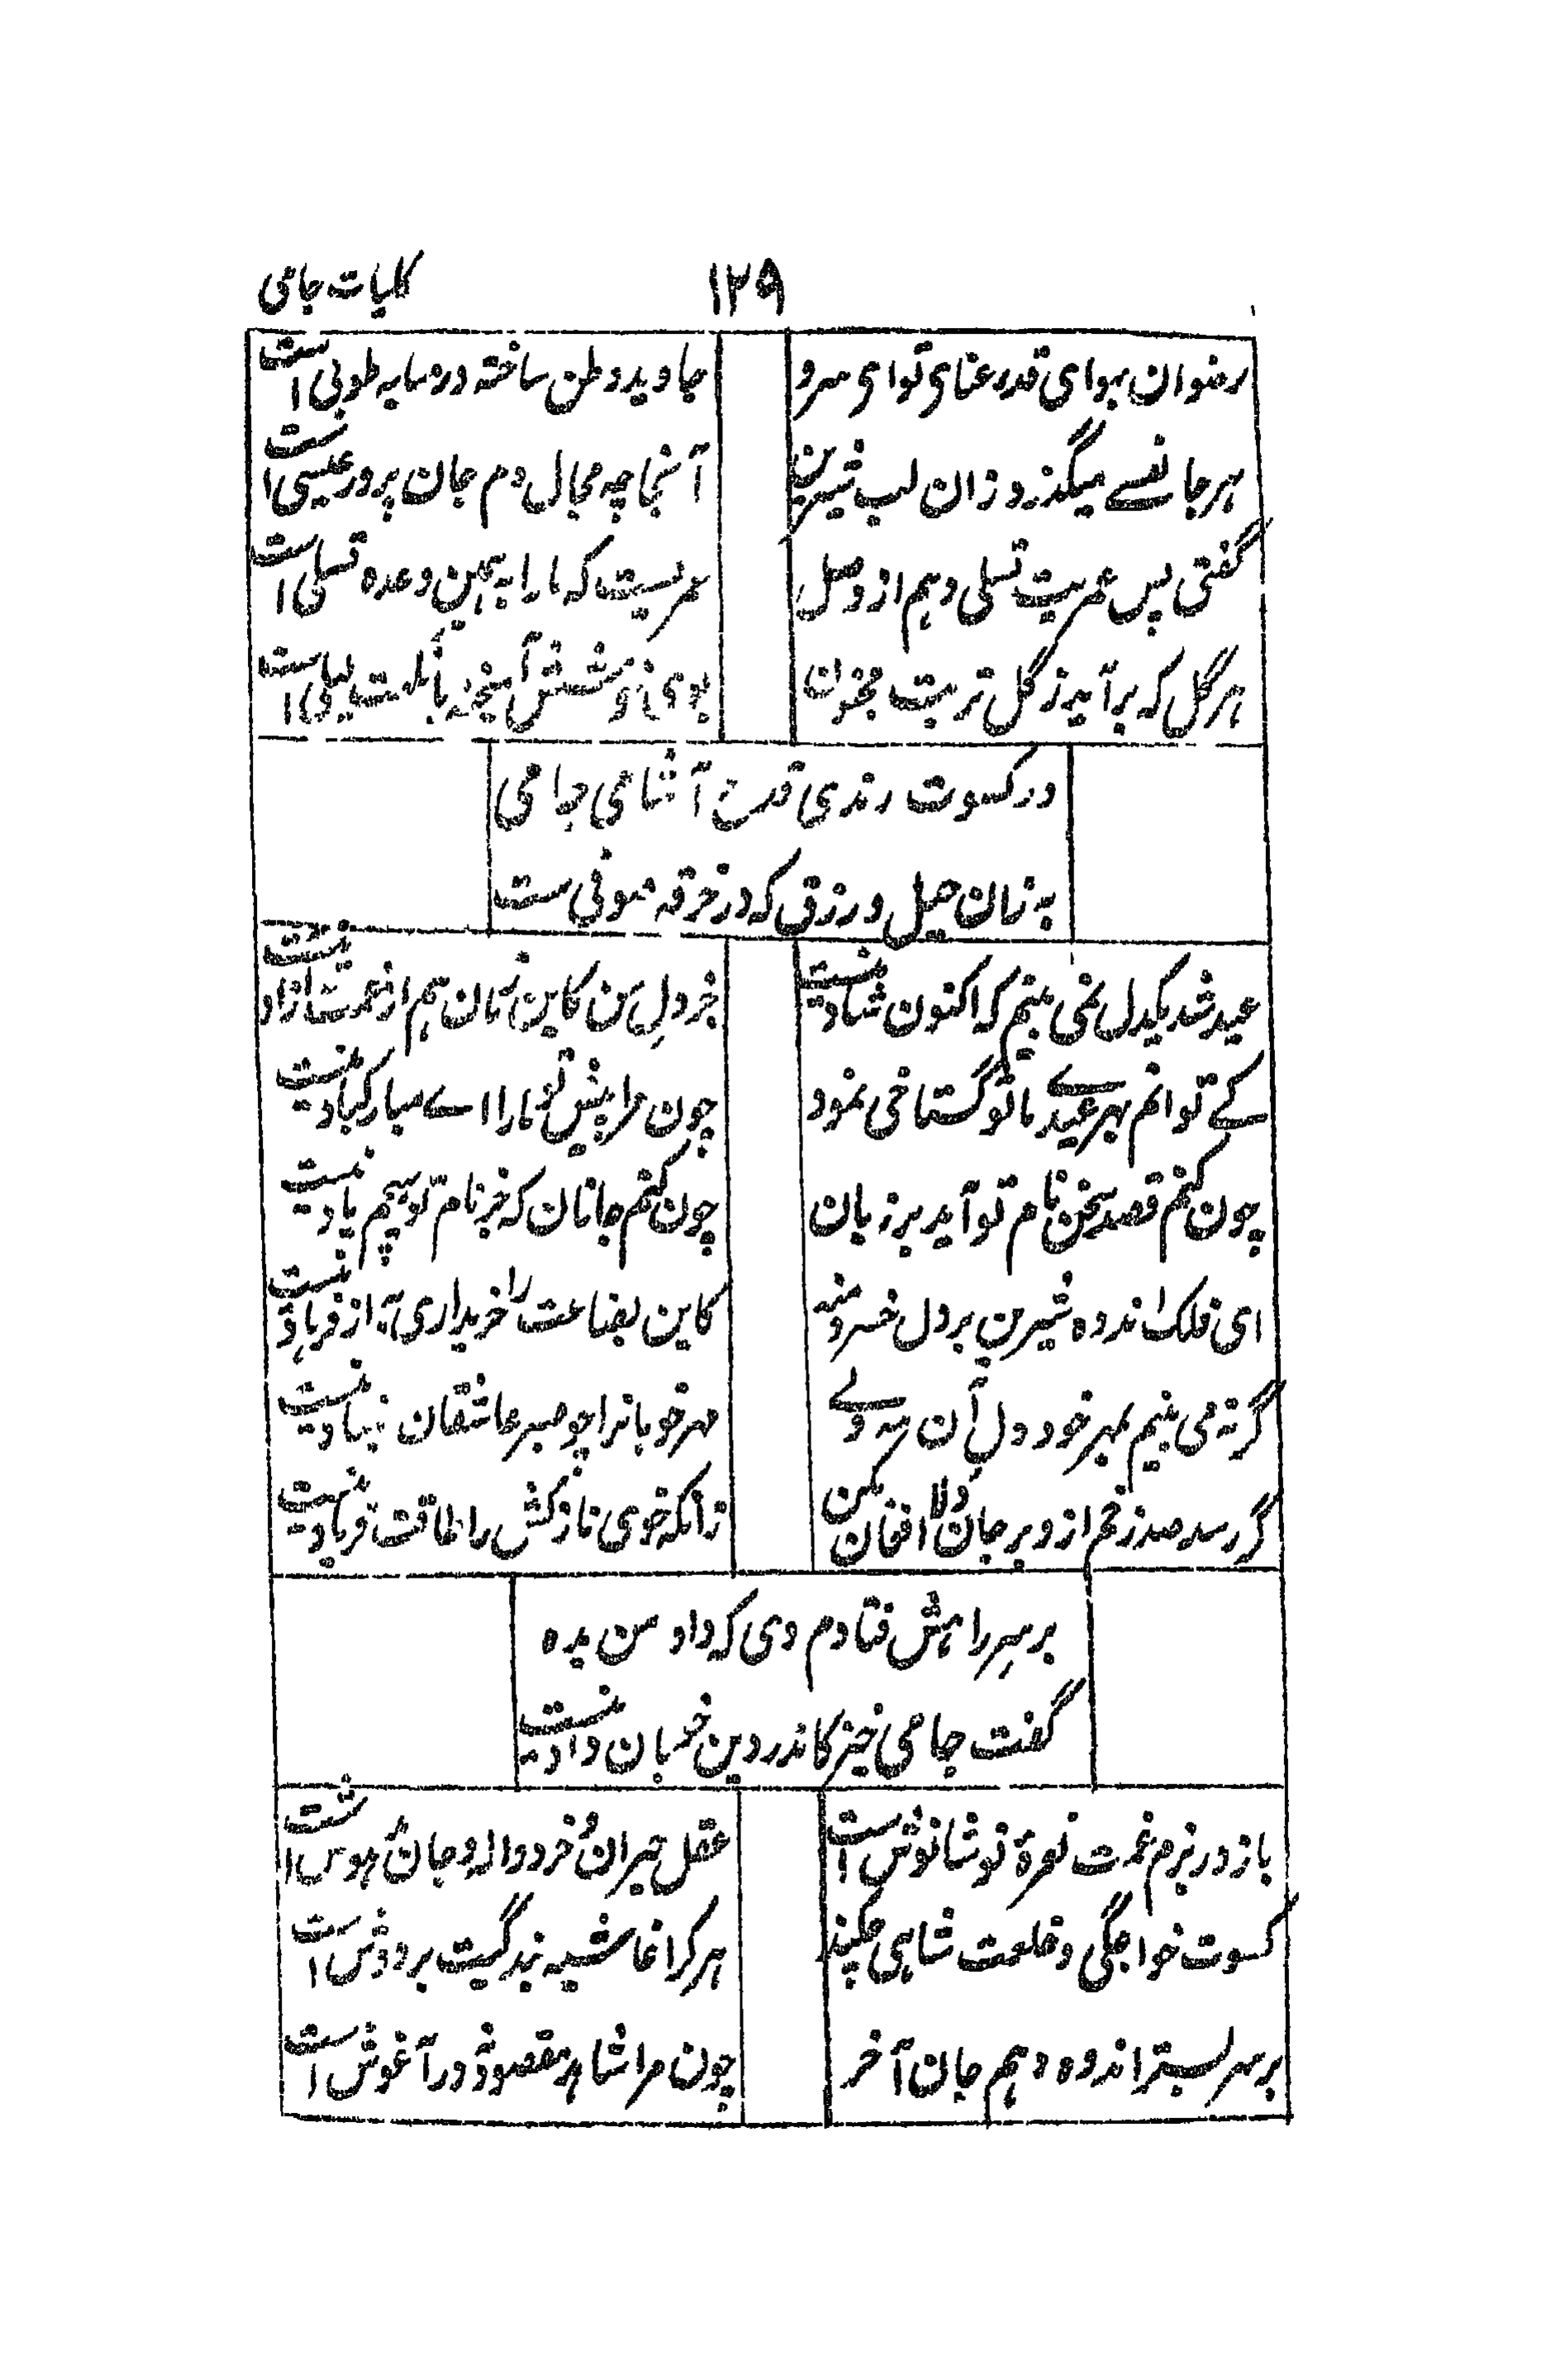 کلیات جامی
۱۲۹
رضوان بهوای قد رعنای تو ای سرو
جاوید وطن ساخته در سایه طوبی است
هر جا نفسے میگذرد زان لب شیرین
آنجا چه مجال دم جان پرور عیسی است
گفتی پس عمریت تسلی دهم از وصل
عمریست که ما را به همین وعده تسلی است
هر گل که برآید ز گل تربت مجنون
بوی آمیخته با لیلی است
در کسوت رندی قدح آشامی جامی
به زان حیل و رزق که در خرقه صوفی ست
عید شد یکدل نمی بینم که اکنون شاد نیست
جز دلِ من کاین زمان هم از غمت آزاد نیست
کے توانم بهر عیدے با تو گستاخی نمود
چون مرا پیش تو یارا اے مبارکباد نیست
چون کنم قصد سخن نام تو آید بر زبان
چون کنم جانان که جز نام تو هیچم یاد نیست
ای فلک اندوه شیرین بر دل خسرو منه
کاین بضاعت را خریداری به از فرهاد نیست
گرچه می بینم بمهر خود دل آن مه ولے
مهر خوبانرا چو صبر عاشقان بنیاد نیست
گر رسد صد زخم ازو بر جان دلا افغان مکن
زانکه خوی نازکش را طاقت فریاد نیست
بر سرِ راهش فتادم دی که داد من بده
گفت جامی خیز کاندر دین خوبان داد نیست
باز در بزم غمت نعرهٔ نوشانوش است
عقل حیران و خرد واله و جان مدهوش است
کسوت خواجگی و خلعت شاهی چکند
هر کرا غاشیه بندگیت بر دوش است
بر سر بستر اندوه دهم جان آخر
چون مرا شاهد مقصود در آغوش است